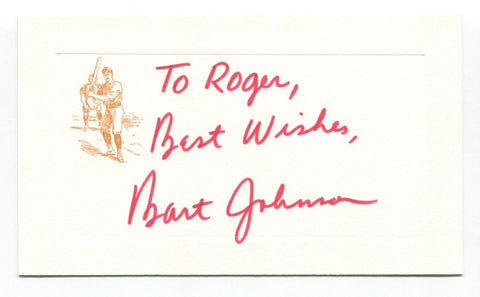 To Roger,
Best Wishes,
Bart Johnson